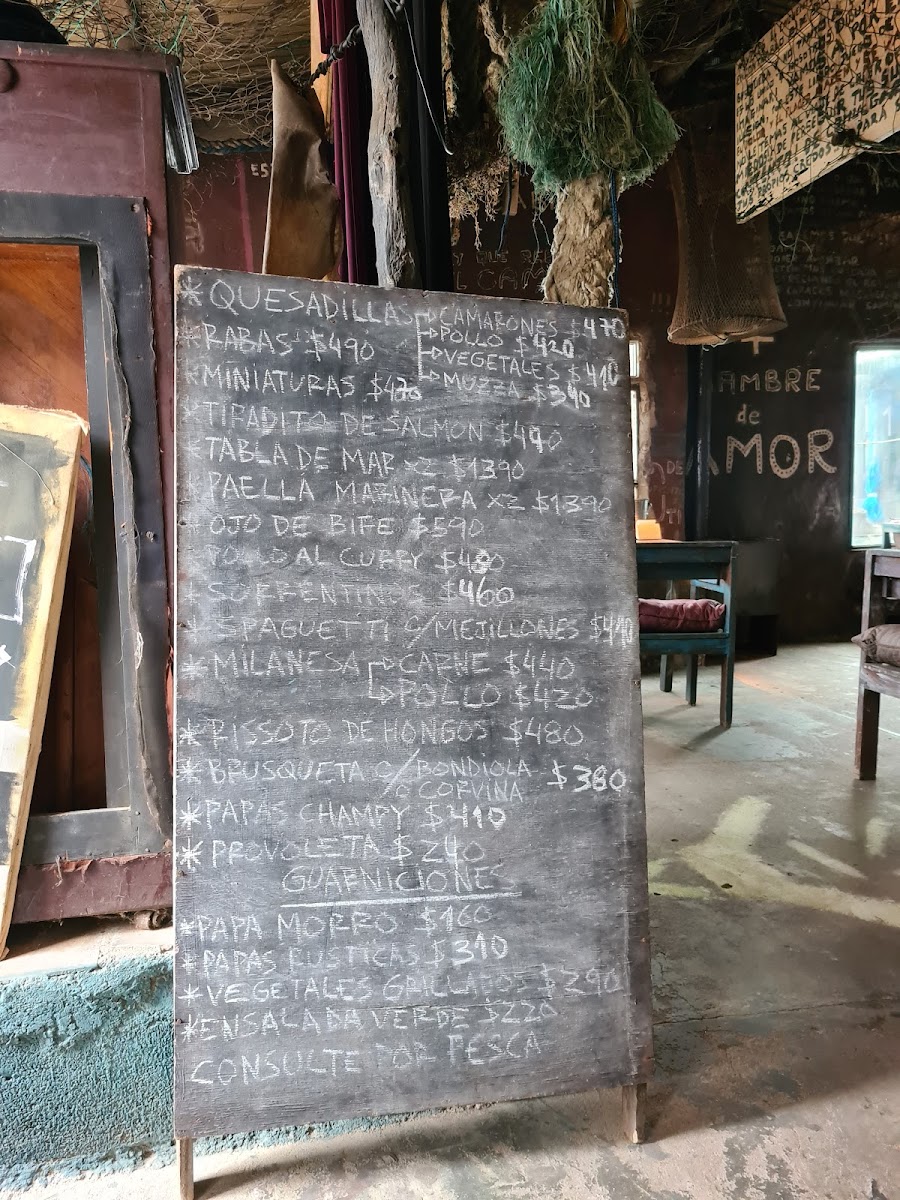 *QUESADILLAS
CAMARONES $470
POLLO $420
VEGETALES $410
MUZZA $390
*RABAS $490
*MINIATURAS
*TIRADITO DE SALMON $490
*TABLA DE MAR X2 $1390
*PAELLA MARINERA X2 $1390
*OJO DE BIFE $590
*POLLO AL CURRY
*SORRENTINOS $460
*SPAGUETTI C/MEJILLONES
*MILANESA
CARNE $440
POLLO $420
*RISSOTO DE HONGOS $480
*BRUSQUETA C/BONDIOLA $380
O CORVINA
*PAPAS CHAMPY $410
*PROVOLETA $240
GUARNICIONES
*PAPA MORRO $160
*PAPAS RUSTICAS $310
*VEGETALES GRILLADOS $290
*ENSALADA VERDE $220
CONSULTE POR PESCA
AMBRE
de
AMOR